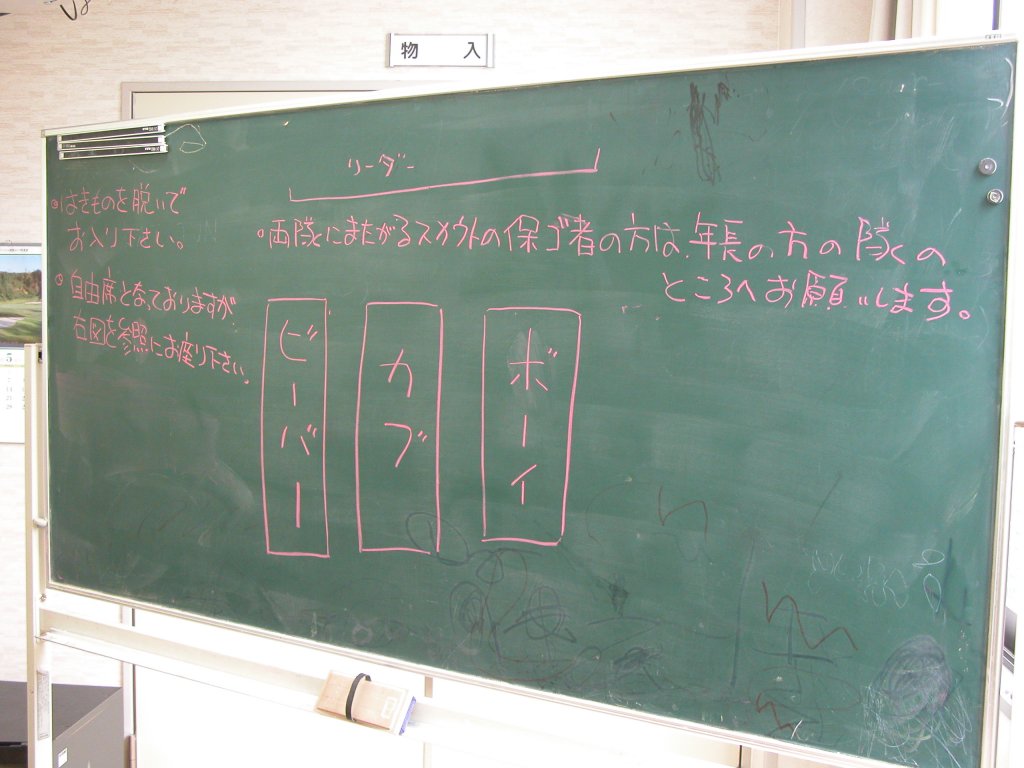 物 入
リーダー
・はきものを脱いで
お入り下さい。
・自由席となっておりますが
右図を参照にお座り下さい。
・両隊にまたがるスカウトの保ゴ者の方は、年長の方の隊の
ところへお願いします。
ビーバー
カブ
ボーイ
5